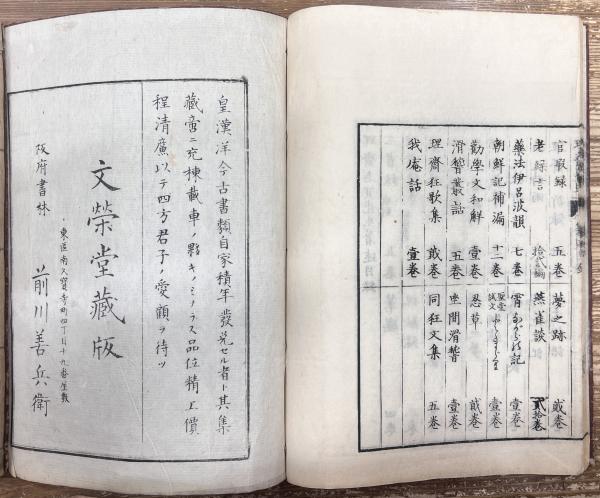 官暇録 五巻 夢之跡 貮巻
老緑言 拾貮編 燕雀談 貮拾巻
藥法伊呂波韻 七巻 霄 の記 壹巻
朝鮮記補漏 十二巻 壹巻
勸學文和解 壹巻 忍草 貮巻
滑稽叢話 五巻 坐間滑稽 壹巻
理齋狂歌集 貮巻 同狂文集 五巻
我庵話 壹巻
皇漢洋今古書類自家積年發兌セル者ト其集
藏書ニ充棟載車ノ夥キノミナラス品位精上價
程清廉以テ四方君子ノ愛顧ヲ待ツ
文榮堂藏版
東區南久寳寺町四丁目十九番屋敷
阪府書林 前川善兵衛